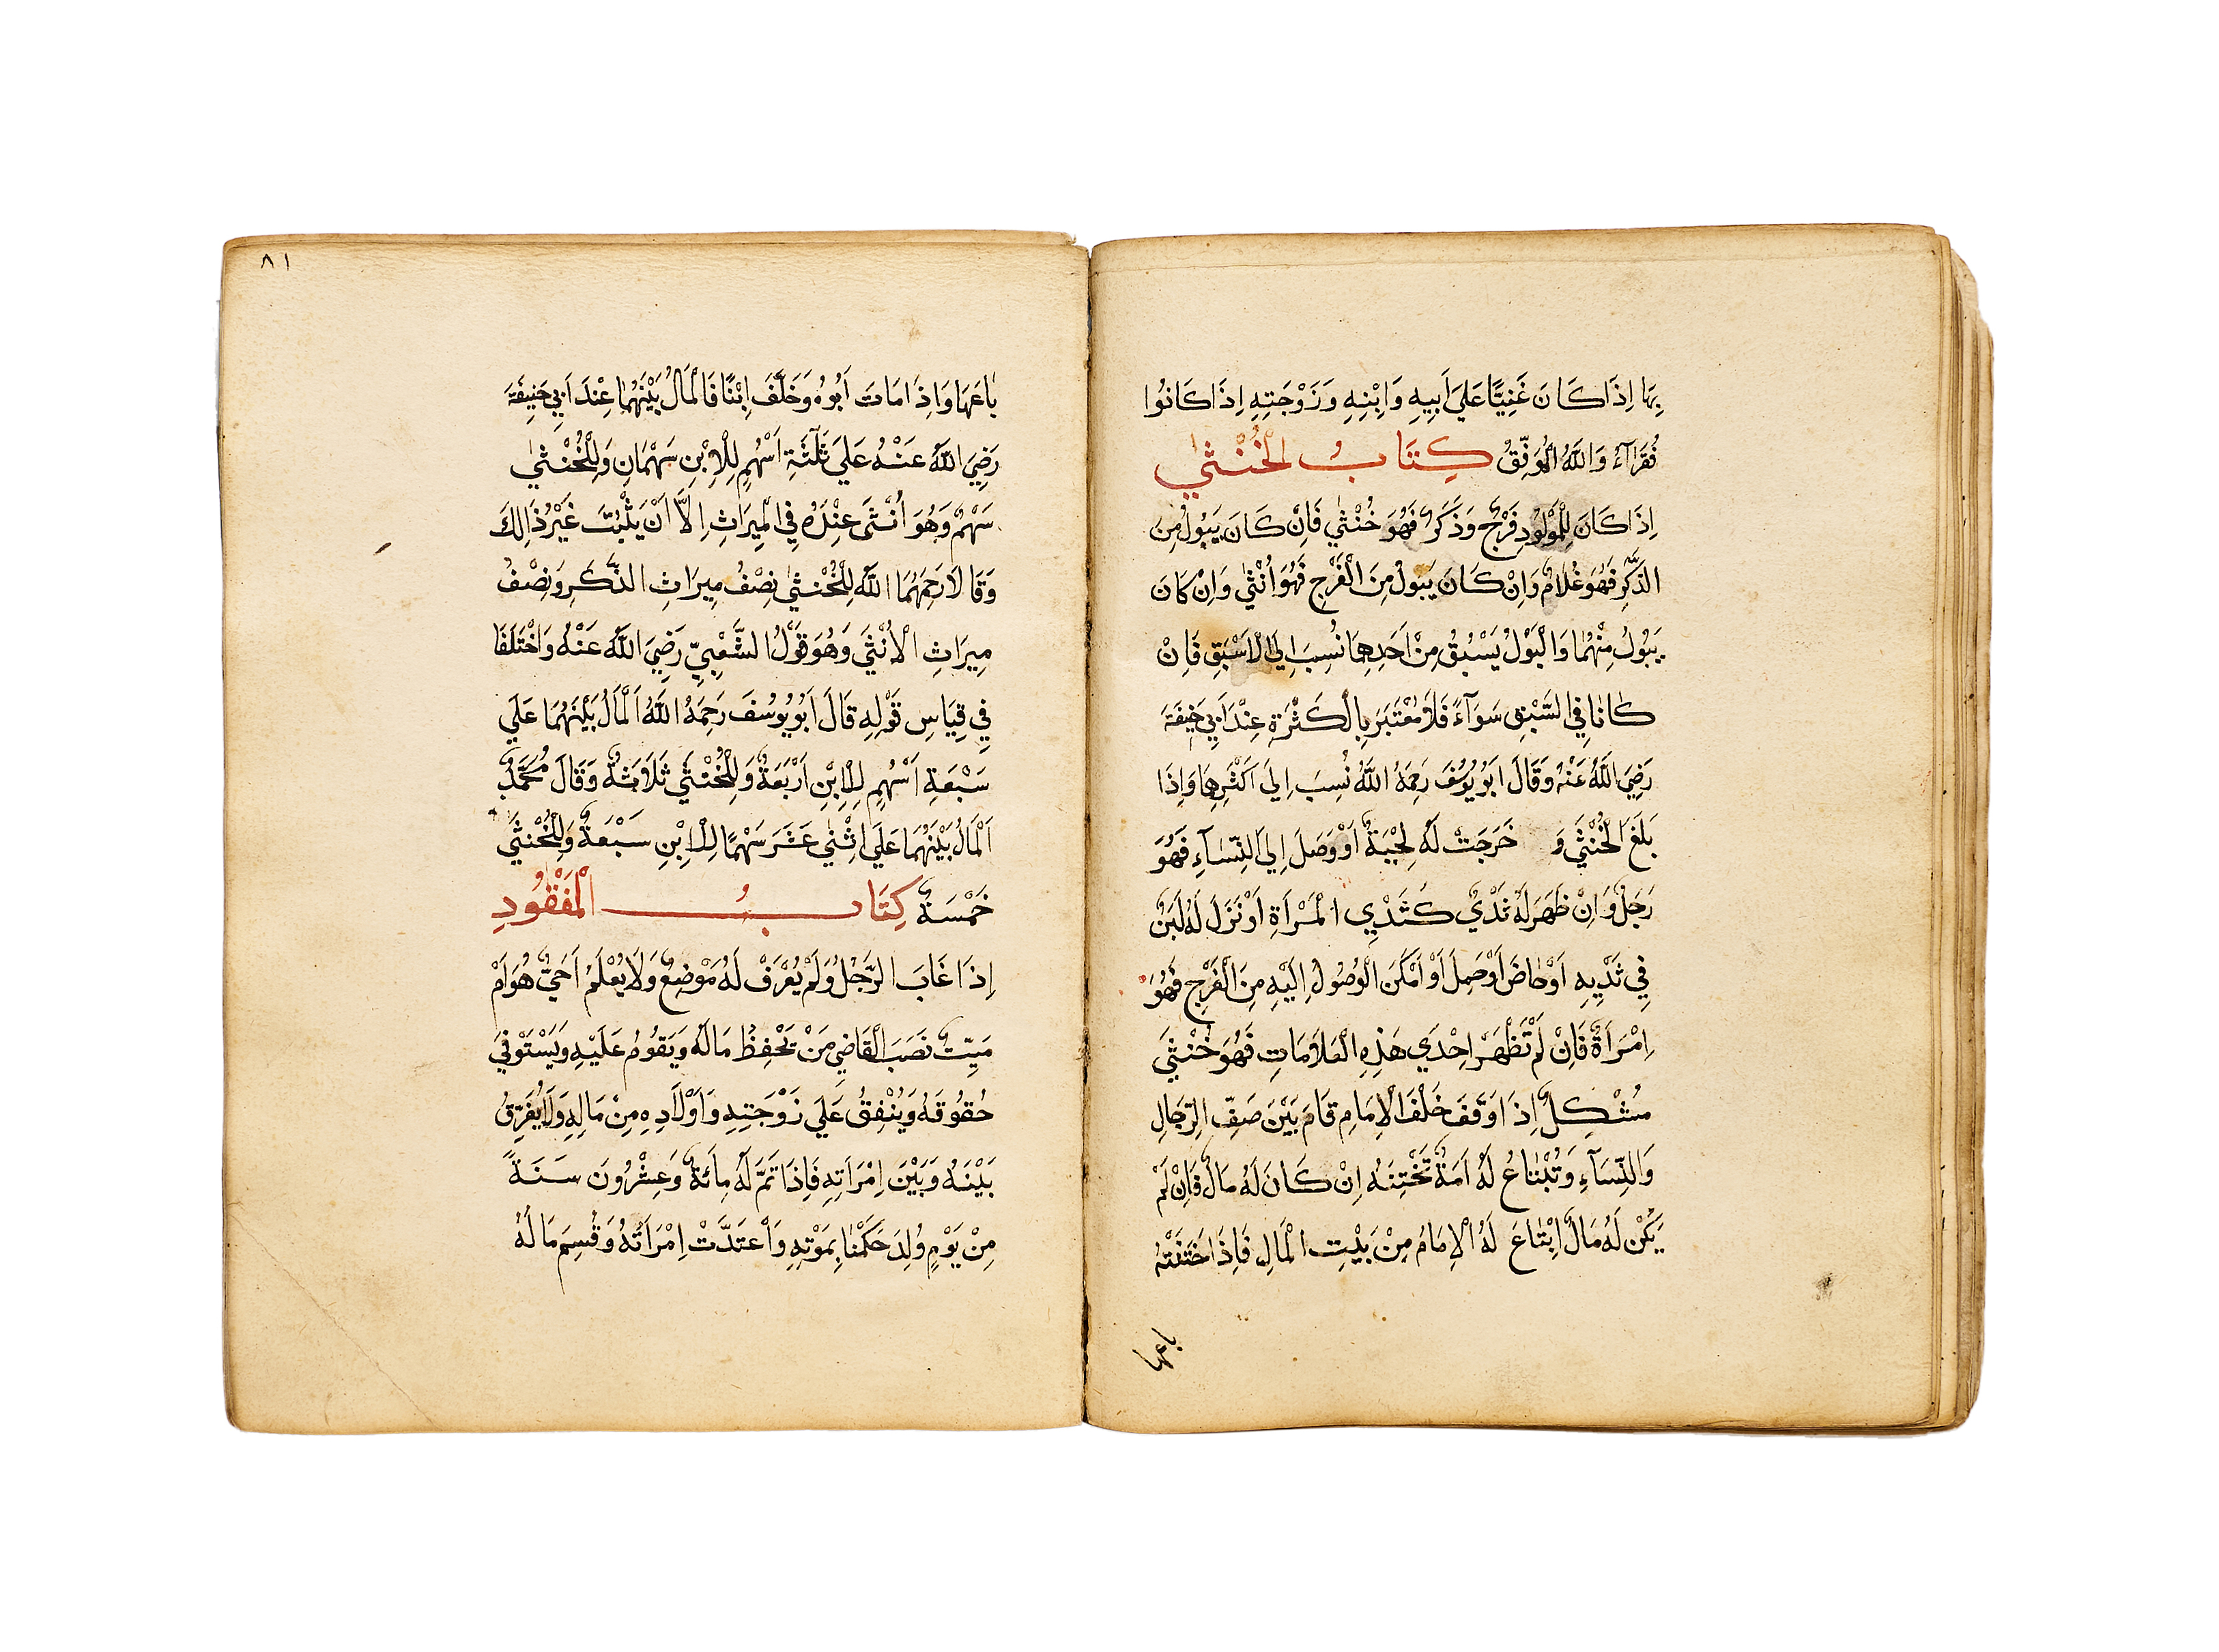 بِهَا اِذَا كَانَ غَنِيًّا عَلَي اَبِيهِ وَابْنِهِ وَزَوْجَتِهِ اِذَا كَانُوا
فُقَرَآءَ وَاللَّهُ الْمُوَفِّقُ كِتَابُ الْخُنْثٰي
اِذَا كَانَ لِلْمَوْلُودِ فَرْجٌ وَذَكَرٌ فَهُوَ خُنْثٰي فَاِنْ كَانَ يَبُولُ مِنَ
الذَّكَرِ فَهُوَ غُلَامٌ وَاِنْ كَانَ يَبُولُ مِنَ الْفَرْجِ فَهُوَ اُنْثٰي وَاِنْ كَانَ
يَبُولُ مِنْهُمَا وَالْبَوْلُ يَسْبُقُ مِنْ اَحَدِهِمَا نُسِبَ اِلَي الْاَسْبَقِ فَاِنْ
كَانَا فِي السَّبْقِ سَوَآءً فَلَا مُعْتَبَرَ بِالْكَثْرَةِ عِنْدَ اَبِي حَنِيفَةَ
رَضِيَ اللَّهُ عَنْهُ وَقَالَ اَبُو يُوسُفَ رَحِمَهُ اللَّهُ نُسِبَ اِلَي اَكْثَرِهِمَا وَاِذَا
بَلَغَ الْخُنْثَي وَ خَرَجَتْ لَهُ لِحْيَةٌ اَوْ وَصَلَ اِلَي النِّسَآءِ فَهُوَ
رَجُلٌ وَاِنْ ظَهَرَ لَهُ ثَدْيٌ كَثَدْيِ الْمَرْأَةِ اَوْ نَزَلَ لَهُ لَبَنٌ
فِي ثَدْيِهِ اَوْ حَاضَ اَوْ حَمِلَ اَوْ اَمْكَنَ الْوُصُولُ اِلَيْهِ مِنَ الْفَرْجِ فَهُوَ
اِمْرَأَةٌ فَاِنْ لَمْ تَظْهَرْ اِحْدَي هَذِهِ الْعَلَامَاتِ فَهُوَ خُنْثَي
مُشْكِلٌ اِذَا وَقَفَ خَلْفَ الْاِمَامِ قَامَ بَيْنَ صَفِّ الرِّجَالِ
وَالنِّسَآءِ وَتُبْتَاعُ لَهُ اَمَةٌ تَخْتِنَهُ اِنْ كَانَ لَهُ مَالٌ فَاِنْ لَمْ
يَكُنْ لَهُ مَالٌ اِبْتَاعَ لَهُ الْاِمَامُ مِنْ بَيْتِ الْمَالِ فَاِذَا خَتَنَتْهُ
باعها
٨١
بَاعَهَا وَاِذَا مَاتَ اَبُوهُ وَخَلَّفَ اِبْنًا فَالْمَالُ بَيْنَهُمَا عِنْدَ اَبِي حَنِيفَةَ
رَضِيَ اللَّهُ عَنْهُ عَلَي ثَلٰثَةِ اَسْهُمٍ لِلْاِبْنِ سَهْمَانِ وَلِلْخُنْثٰي
سَهْمٌ وَهُوَ اُنْثَى عِنْدَهُ فِي الْمِيرَاثِ اِلَّا اَنْ يَثْبُتَ غَيْرُ ذَالِكَ
وَقَالَا رَحِمَهُمَا اللَّهُ لِلْخُنْثٰي نِصْفُ مِيرَاثِ الذَّكَرِ وَنِصْفُ
مِيرَاثِ الْاُنْثَي وَهُوَ قَوْلُ الشَّعْبِيِّ رَضِيَ اللَّهُ عَنْهُ وَاخْتَلَفَا
فِي قِيَاسِ قَوْلِهِ قَالَ اَبُو يُوسُفَ رَحِمَهُ اللَّهُ اَلْمَالُ بَيْنَهُمَا عَلَي
سَبْعَةِ اَسْهُمٍ لِلْاِبْنِ اَرْبَعَةٌ وَلِلْخُنْثَي ثَلَاثَةٌ وَقَالَ مُحَمَّدٌ
اَلْمَالُ بَيْنَهُمَا عَلَي اثْنٰي عَشَرَ سَهْمًا لِلْاِبْنِ سَبْعَةٌ وَلِلْخُنْثَي
خَمْسَةٌ كِتَابُ الْمَفْقُودِ
اِذَا غَابَ الرَّجُلُ وَلَمْ يُعْرَفْ لَهُ مَوْضِعٌ وَلَا يُعْلَمُ اَحَيٌّ هُوَ اَمْ
مَيِّتٌ نَصَبَ الْقَاضِي مَنْ يَحْفِظُ مَالَهُ وَيَقُومُ عَلَيْهِ وَيَسْتَوْفِي
حُقُوقَهُ وَيُنْفِقُ عَلَي زَوْجَتِهِ وَاَوْلَادِهِ مِنْ مَالِهِ وَلَا يُفَرِّقُ
بَيْنَهُ وَبَيْنَ اِمْرَاَتِهِ فَاِذَا تَمَّ لَهُ مِائَةٌ وَعِشْرُونَ سَنَةً
مِنْ يَوْمٍ وُلِدَ حَكَمْنَا بِمَوْتِهِ وَاعْتَدَّتْ اِمْرَاَتُهُ وَقُسِمَ مَالُهُ